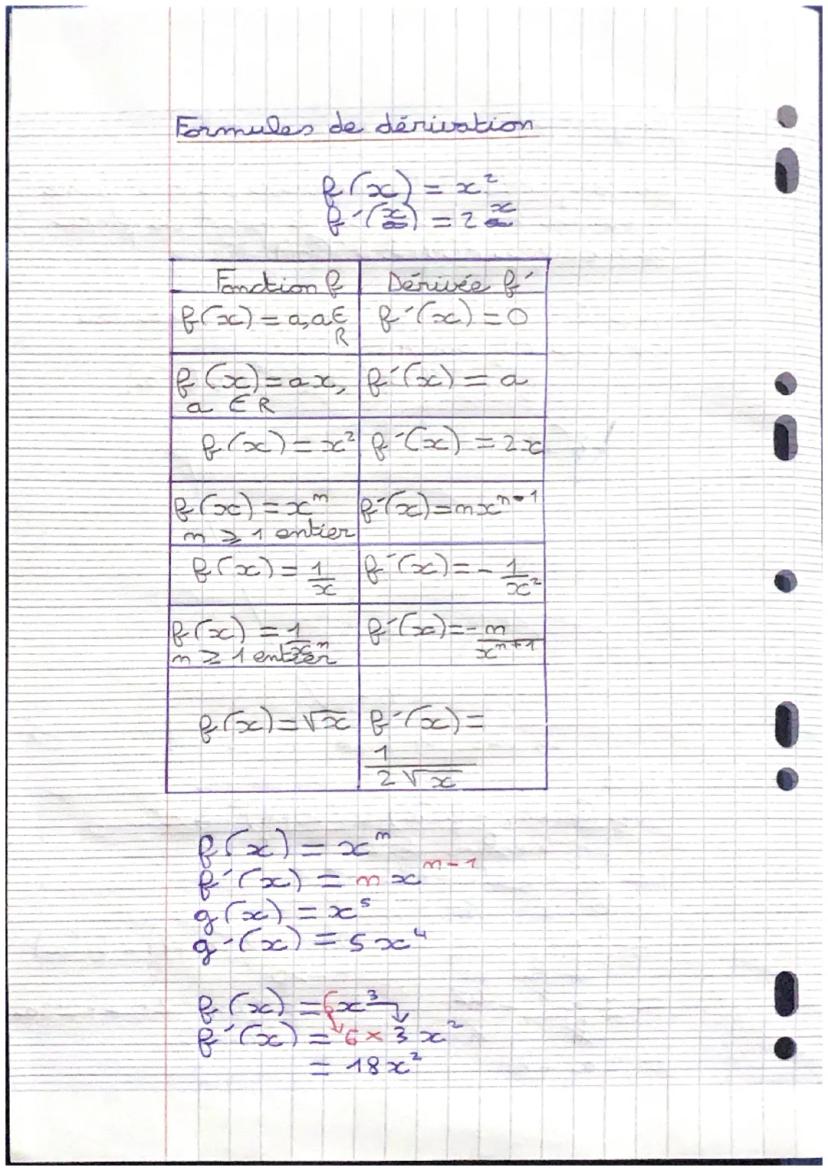 Formules de dérivation
f(x) = x²
f'(x) = 2x
Fonction f | Dérivée f'
f(x) = a, a ∈ R | f'(x) = 0
f(x) = ax, a ∈ R | f'(x) = a
f(x) = x² | f'(x) = 2x
f(x) = xⁿ n ⩾ 1 entier | f'(x) = nxⁿ⁻¹
f(x) = 1/x | f'(x) = -1/x²
f(x) = 1/xⁿ n ⩾ 1 entier | f'(x) = -n/xⁿ⁺¹
f(x) = √x | f'(x) = 1/(2√x)
f(x) = xⁿ
f'(x) = nxⁿ⁻¹
g(x) = x⁵
g'(x) = 5x⁴
f(x) = 6x³
f'(x) = 6 × 3x²
= 18x²